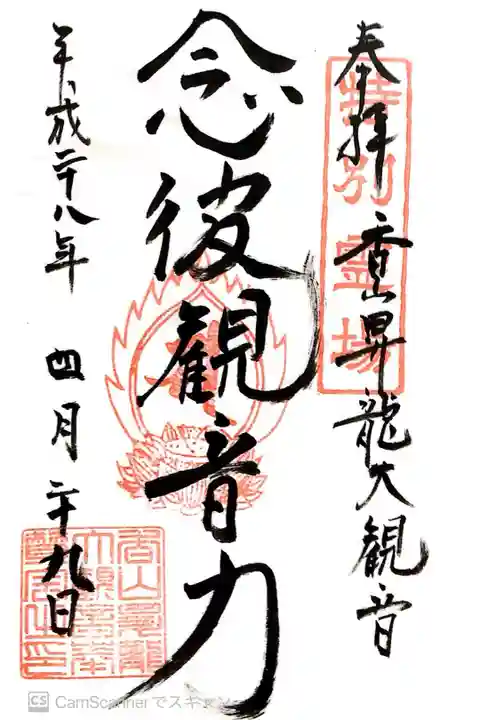 奉拝 香山昇龍大観音
特別霊場
念彼観音力
平成二十八年 四月二十九日
CS CamScannerでスキャン